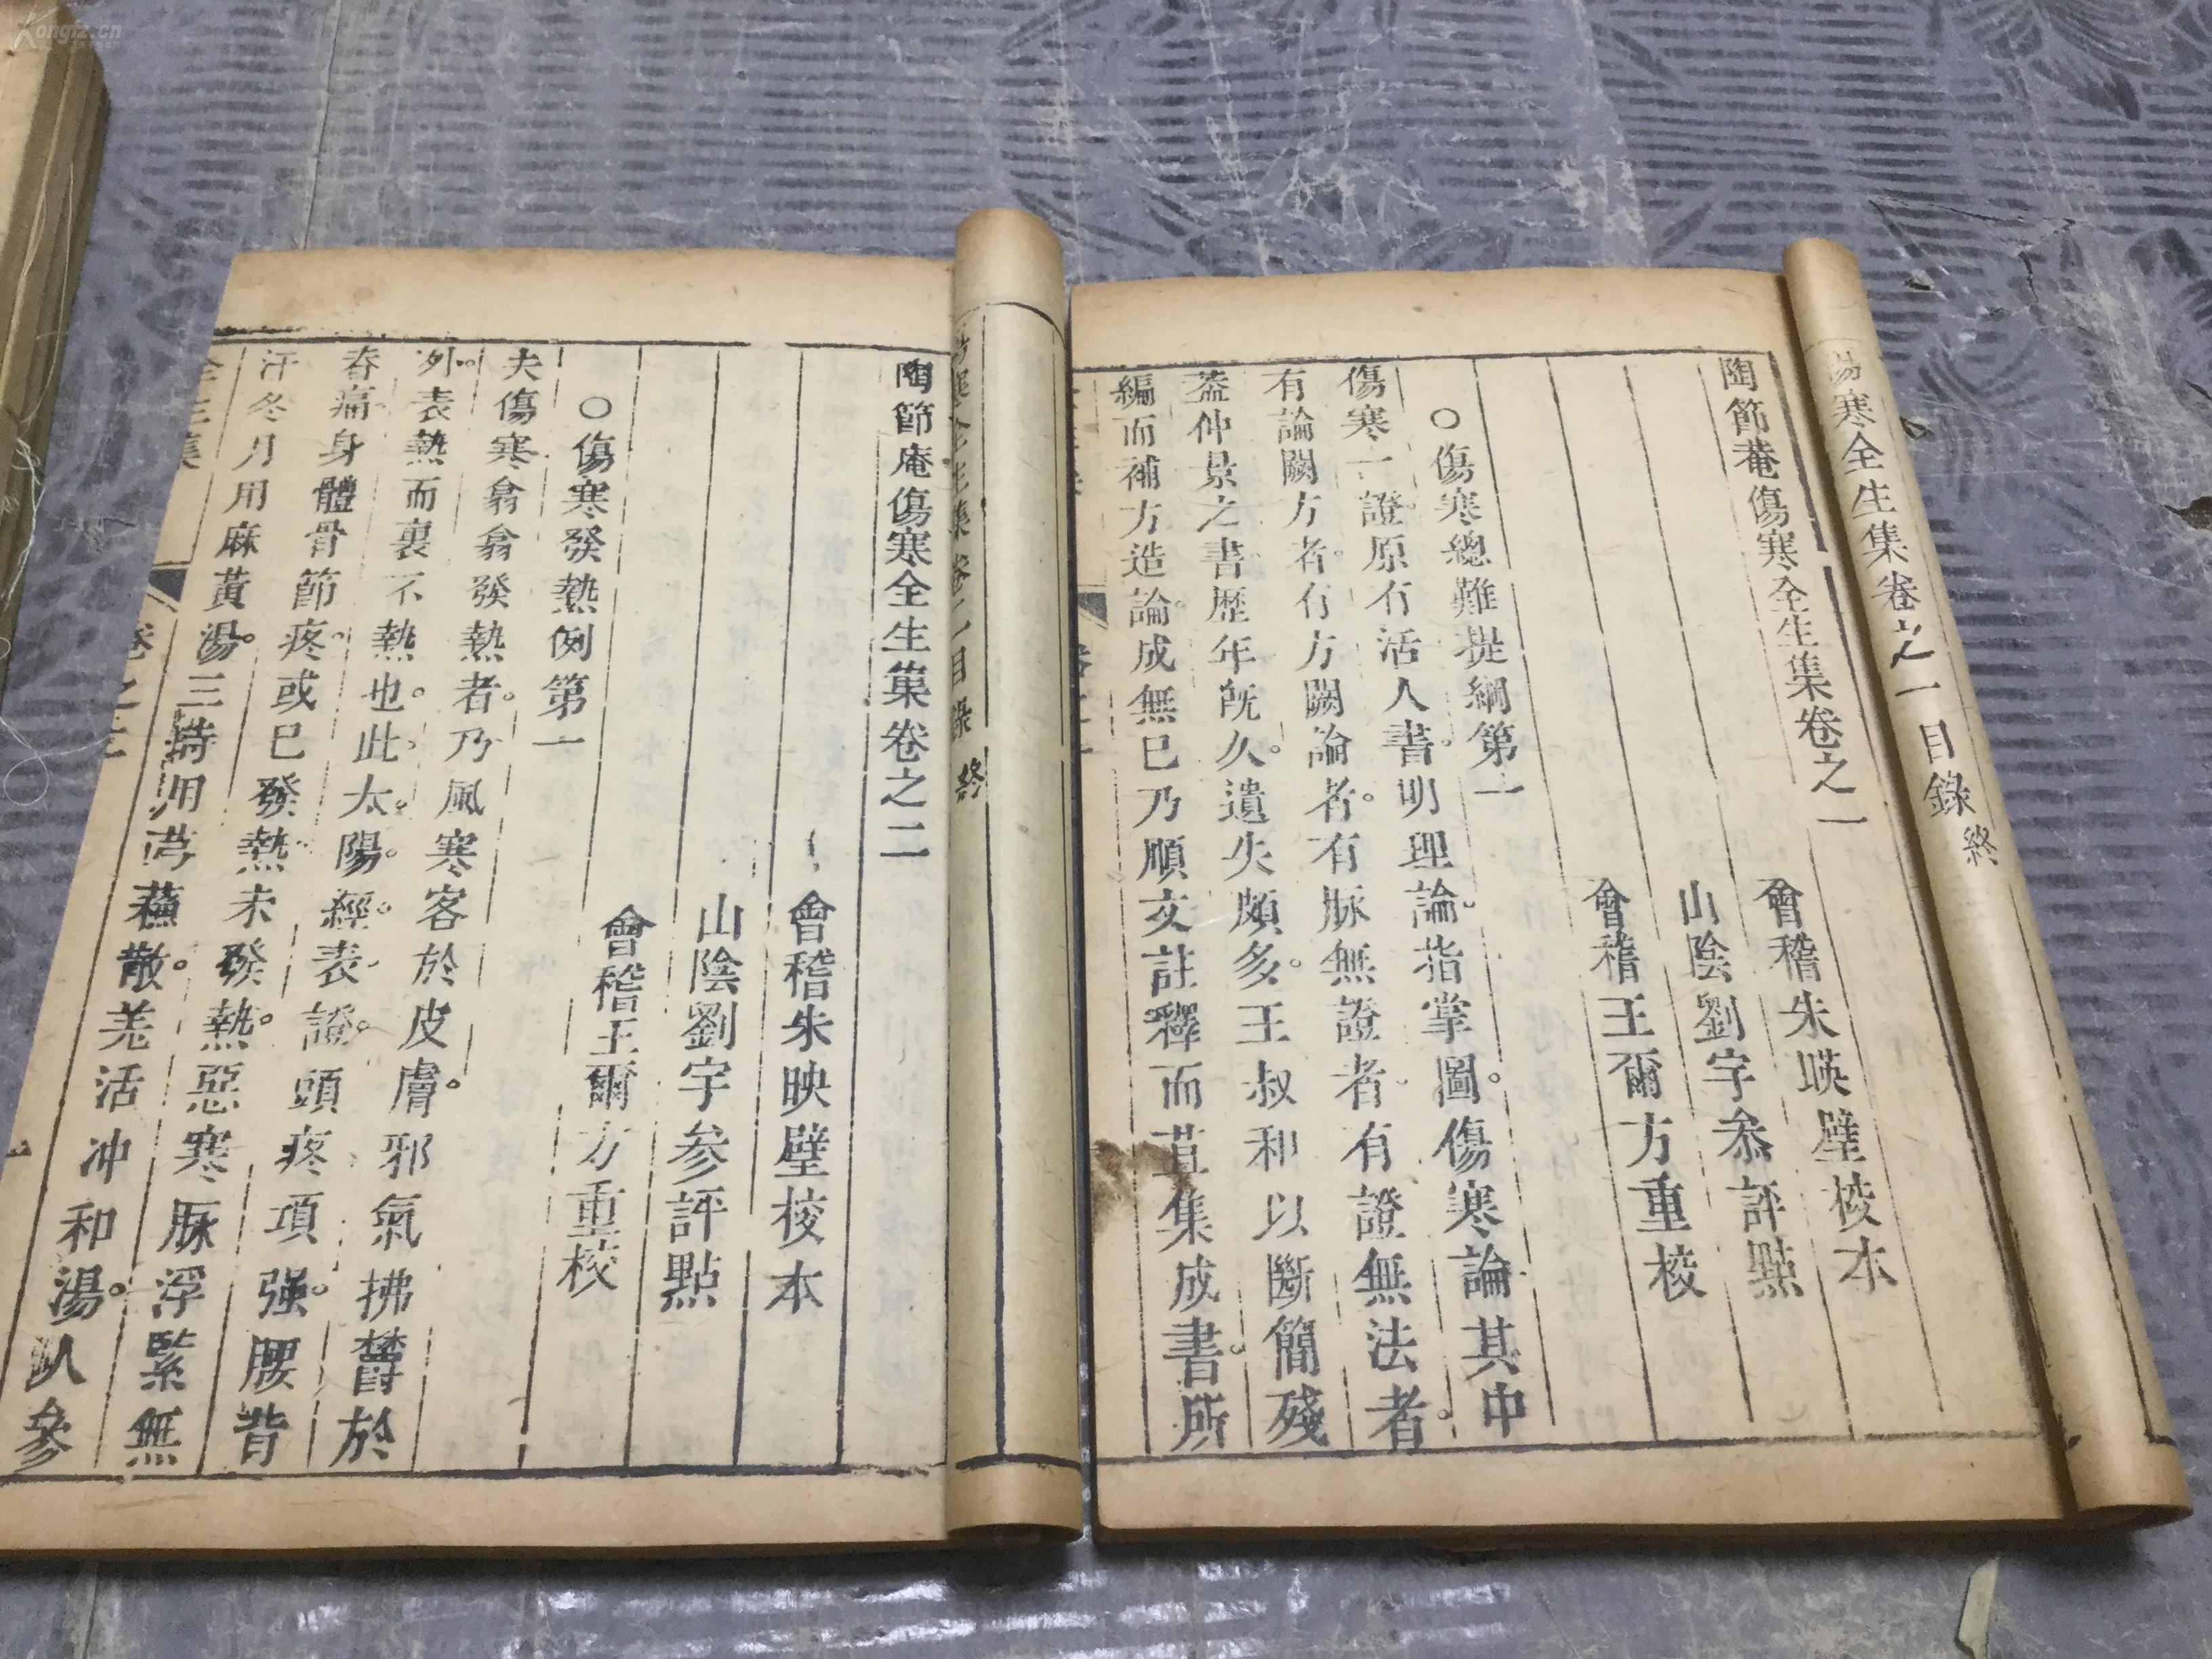 傷寒全生集卷之一目錄終
陶節菴傷寒全生集卷之一
會稽朱暎壁校本
山陰劉宇叅評點
會稽王爾方重校
○傷寒總難提綱第一
傷寒一證原有活人書明理論指掌圖傷寒論其中
有論闕方者有方闕論者有脉無證者有證無法者
葢仲景之書歷年旣久遺失頗多王叔和以斷簡殘
編而補方造論成無已乃順文註釋而苴集成書所
傷寒全生集卷二目錄終
陶節庵傷寒全生集卷之二
會稽朱映壁校本
山陰劉宇参評點
會稽王爾方重校
○傷寒發熱例第一
夫傷寒翕翕發熱者乃風寒客於皮膚邪氣拂鬱於
外表熱而裏不熱也此太陽經表證頭疼項强腰背
春痛身體骨節疼或已發熱未發熱惡寒脉浮緊無
汗冬月用麻黃湯三時用芎蘓散羗活冲和湯臥參
全生集 卷之二
Kongfz.cn